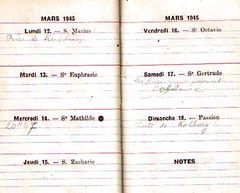 MARS 1945
Lundi 12. — S. Marius
Prise de
Mardi 13. — Sᵉ Euphrasie
Mercredi 14. — Sᵉ Mathilde
Jeudi 15. — S. Zacharie
MARS 1945
Vendredi 16. — Sᵗ Octavie
Samedi 17. — Sᵉ Gertrude
Dimanche 18. — Passion
de Kolberg
NOTES